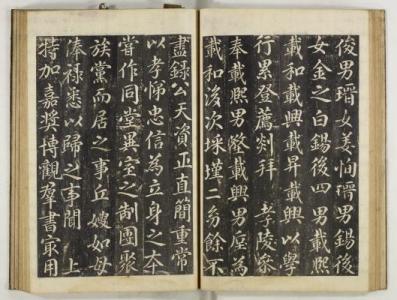 俊男瑨女恂瑨男錫後
女金之白錫後四男載熙
載和載興載昇載興以學
行累登薦剡拜 孝陵參
奉載熙男載興男垕為
載和後次埰墐二餘不
盡錄公天資正直簡重常
以孝悌忠信為立身之本
嘗作同堂異室之制團聚
族黨而居之事丘嫂如母
俸祿悉以歸之事聞 上
特加嘉奬博觀羣書家用